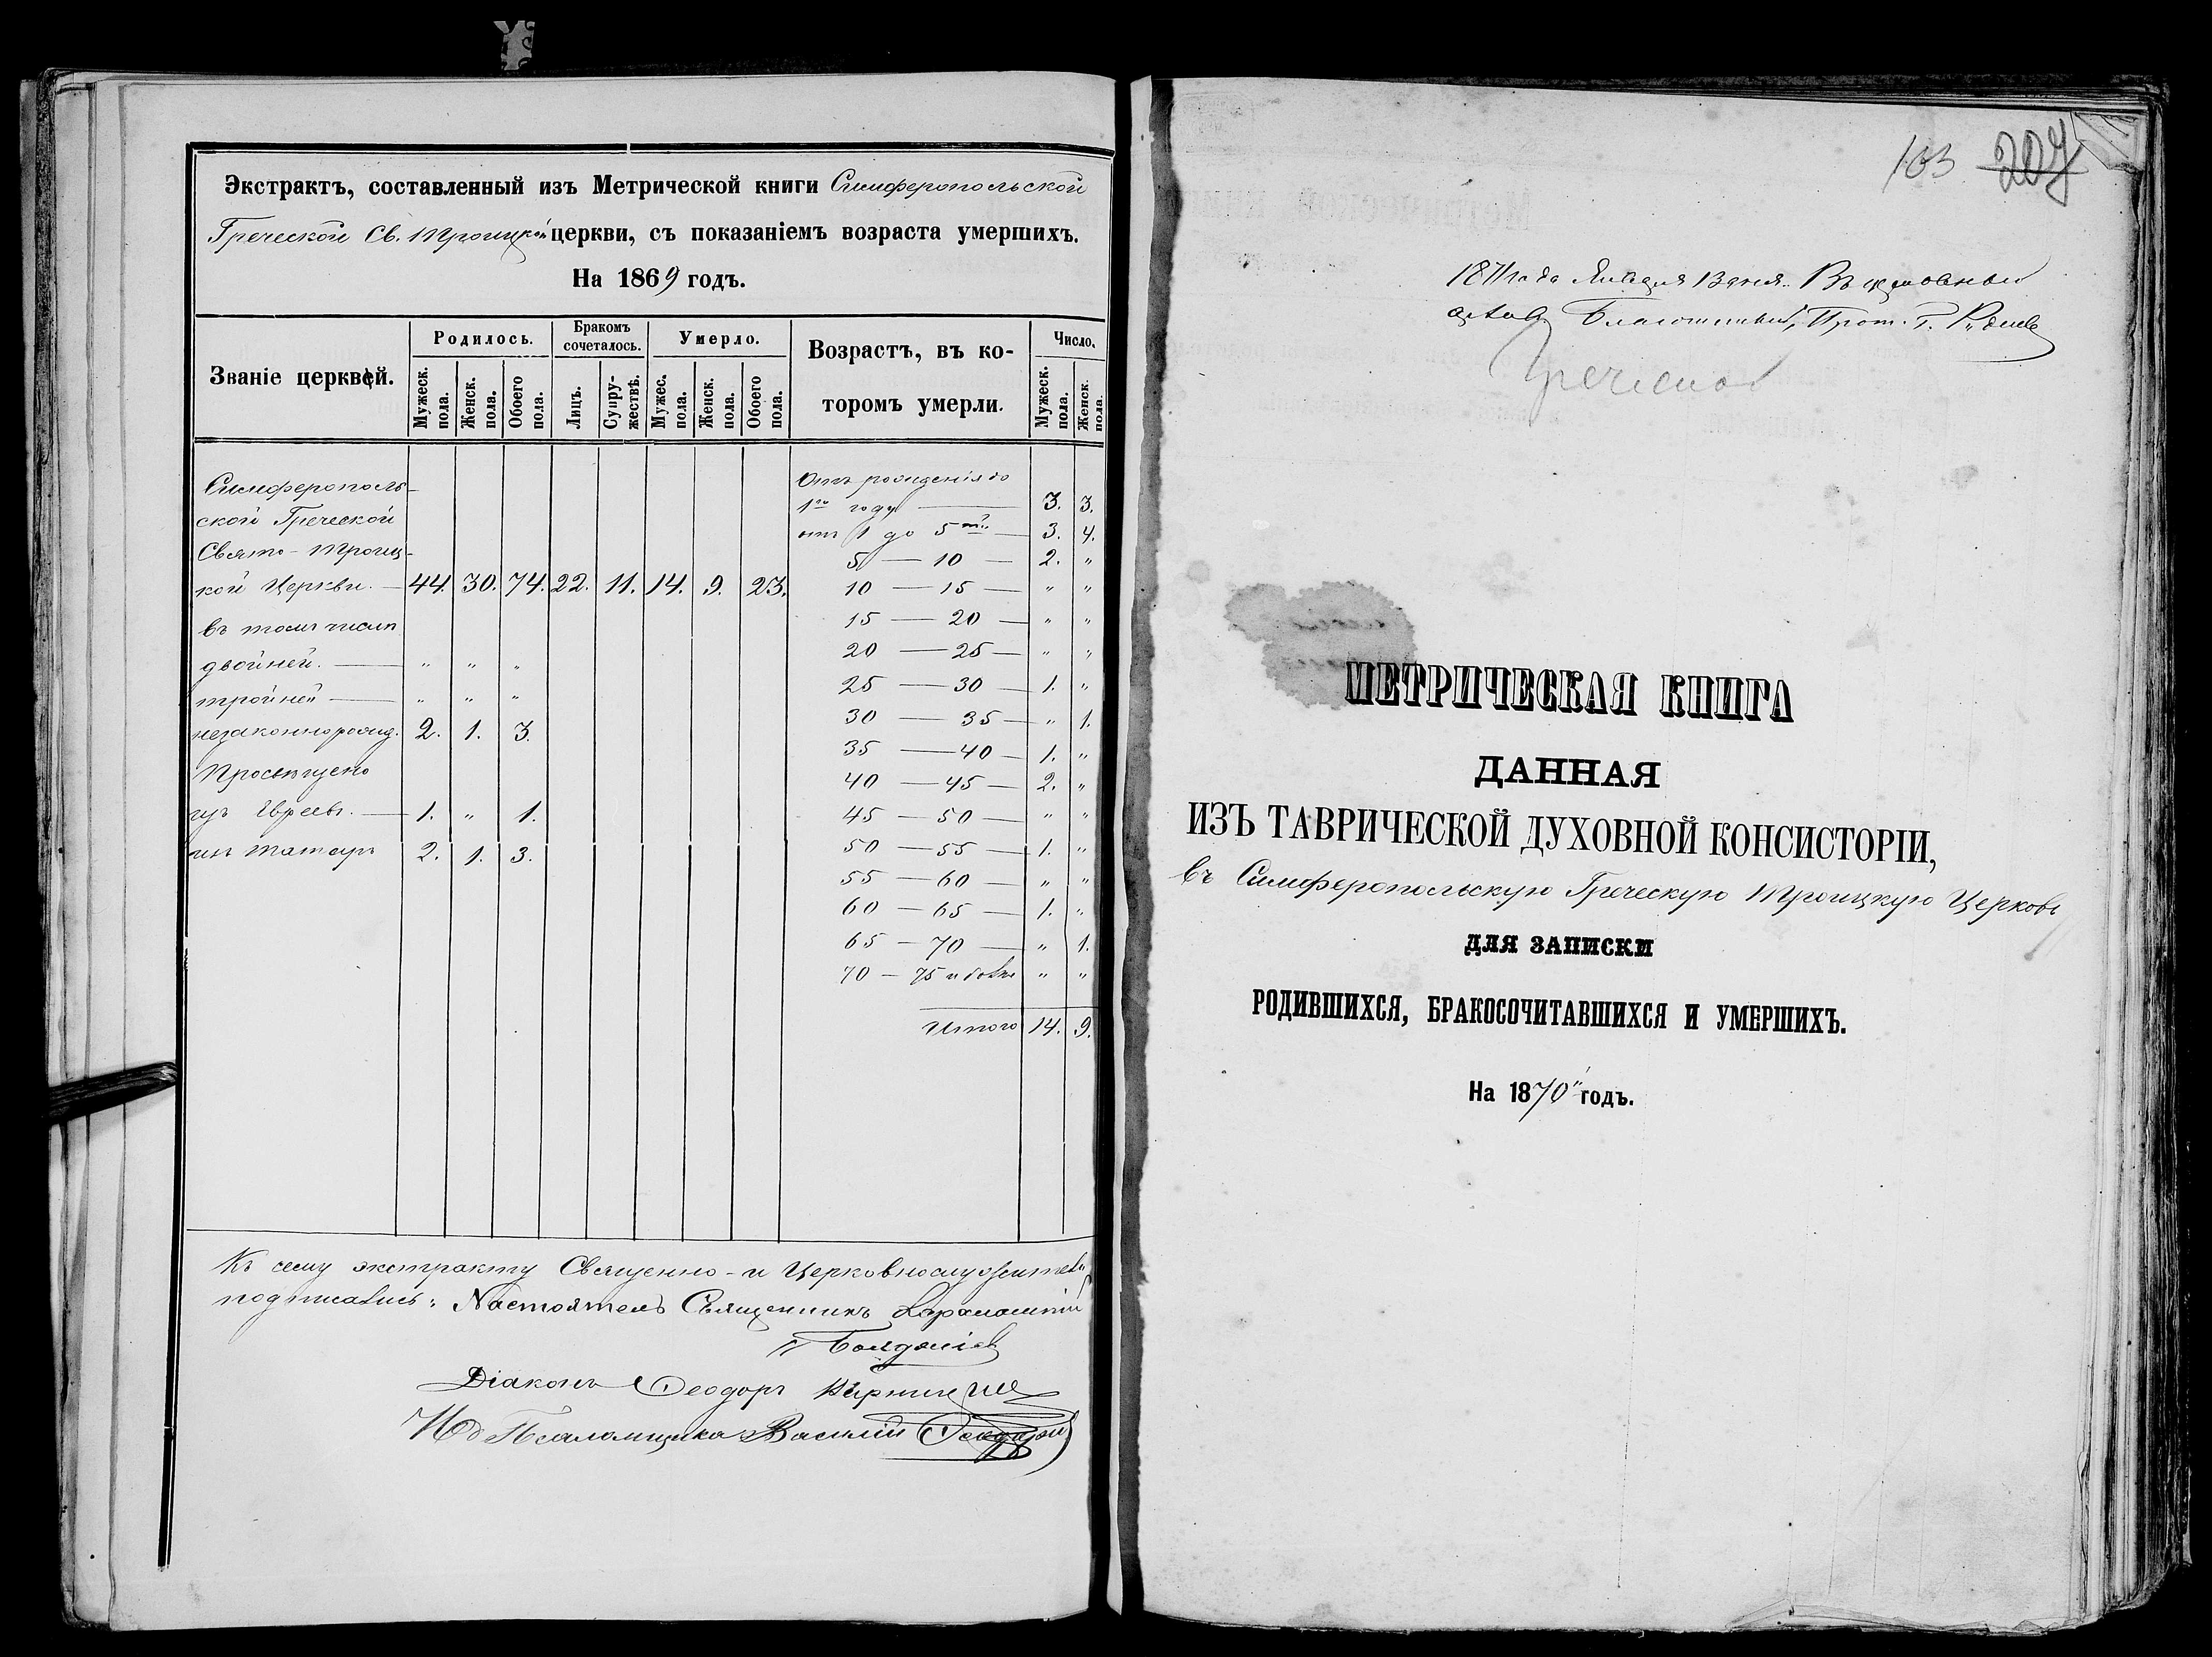 Экстрактъ, составленный изъ Метрической книги Симферопольской
Греческой Св. Троицкой церкви, съ показаніемъ возраста умершихъ.
На 1869 годъ.
Званіе церквей.
Родилось.
Бракомъ сочеталось.
Умерло.
Возрастъ, въ которомъ умерли.
Число.
Мужеск. пола.
Женск. пола.
Обоего пола.
Лицъ.
Супружествъ.
Мужес. пола.
Женск. пола.
Обоего пола.
Мужеск. пола.
Женск. пола.
Симферополь-
ской Греческой
Свято-Троиц-
кой Церкви. — 44. 30. 74. 22. 11. 14. 9. 23.
въ томъ числѣ
двойней. — " " "
тройней — " " "
незаконнорожд. 2. 1. 3.
Просвѣщено
изъ Евреевъ. — 1. " 1.
изъ татаръ 2. 1. 3.
Отъ рожденія до
1го году — 3. 3.
отъ 1 до 5ти — 3. 4.
5 — 10 — 2. "
10 — 15 — " "
15 — 20 — " "
20 — 25 — " "
25 — 30 — 1. "
30 — 35 — " 1.
35 — 40 — 1. "
40 — 45 — 2. "
45 — 50 — " "
50 — 55 — 1. "
55 — 60 — " "
60 — 65 — 1. "
65 — 70 — " 1.
70 — 75 и болѣе " "
Итого 14. 9.
Къ сему экстракту Священно- и Церковнослужители
подписались: Настоятель Священникъ Харалампій
Діаконъ Ѳеодоръ
Псаломщика Василій
103 207
1871 года Января 13 дня. Въ
Благочинный, Прот.
МЕТРИЧЕСКАЯ КНИГА
ДАННАЯ
ИЗЪ ТАВРИЧЕСКОЙ ДУХОВНОЙ КОНСИСТОРІИ,
въ Симферопольскую Греческую Троицкую Церковь
ДЛЯ ЗАПИСКИ
РОДИВШИХСЯ, БРАКОСОЧИТАВШИХСЯ И УМЕРШИХЪ.
На 1870 годъ.